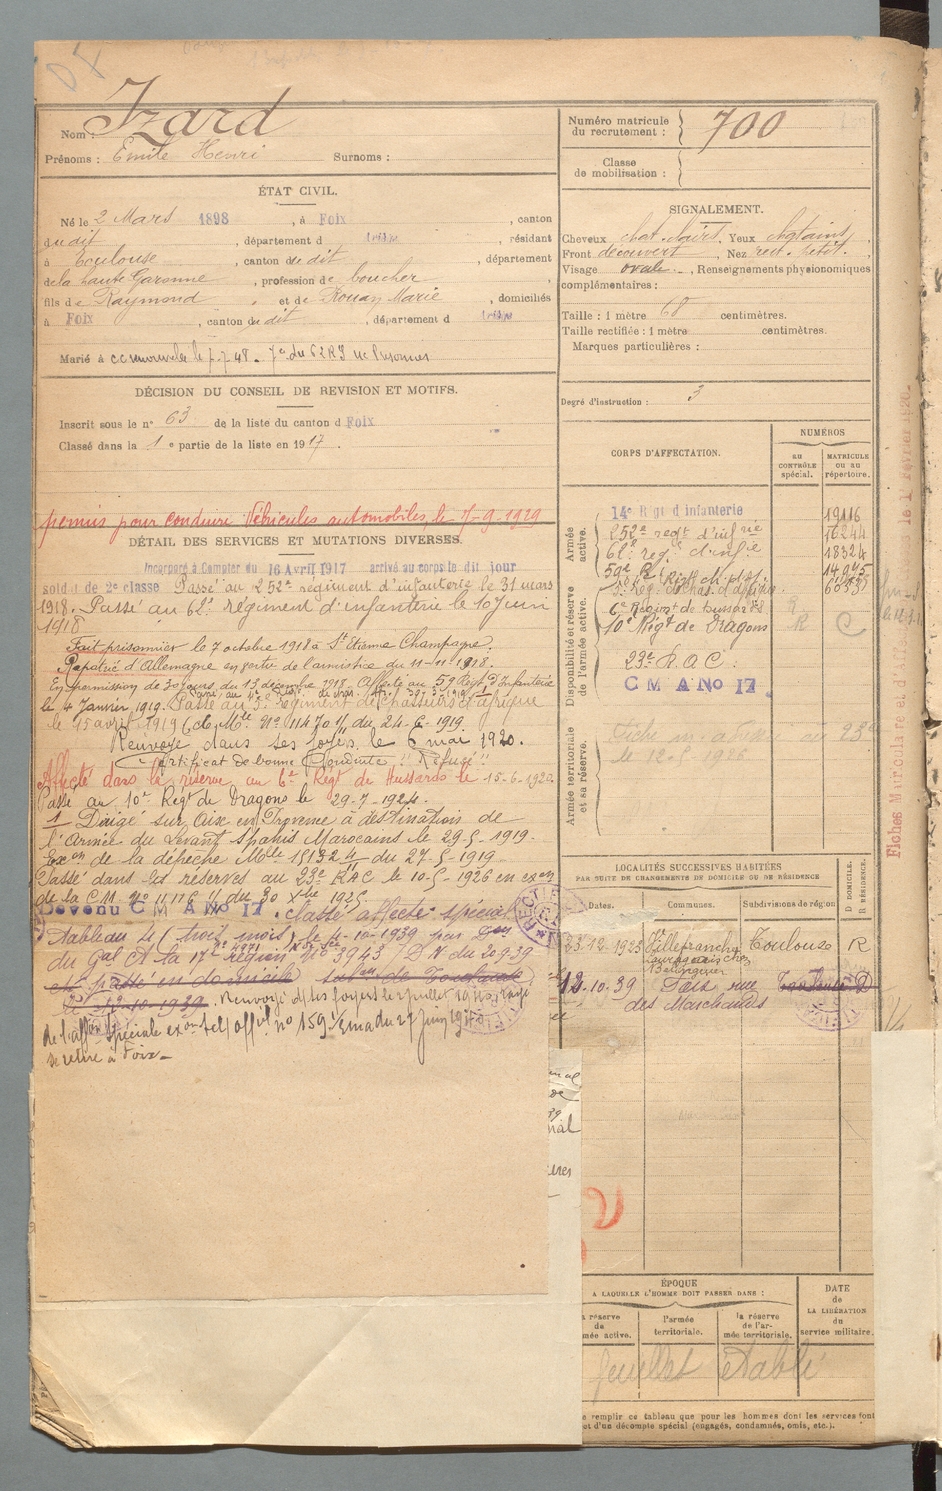 Nom : Izard
Prénoms : Emile Henri Surnoms :
ÉTAT CIVIL.
Né le 2 Mars 1898, à Foix, canton
du dit, département d Ariège, résidant
à Toulouse, canton du dit, département
de la haute Garonne, profession de boucher
fils de Raymond et de Rouan Marie, domiciliés
à Foix, canton du dit, département d Ariège
Marié à
DÉCISION DU CONSEIL DE REVISION ET MOTIFS.
Inscrit sous le n° 63 de la liste du canton d Foix
Classé dans la 1e partie de la liste en 1917.
permis pour conduire Véhicules automobiles, le 7-9-1929
DÉTAIL DES SERVICES ET MUTATIONS DIVERSES.
Incorporé à Compter du 16 Avril 1917 arrivé au corps le dit jour
soldat de 2e classe Passé au 252e régiment d'infanterie le 31 mars
1918. Passé au 62e régiment d'infanterie le 10 Juin
1918
Fait prisonnier le 7 octobre 1918 à St Etienne Champagne.
Rapatrié d'Allemagne en vertu de l'armistice du 11-11-1918.
En permission de 30 jours du 13 décembre 1918. Affecté au 59 Régt d'Infanterie
le 4 Janvier 1919. Passé au 5e régiment de chasseurs d'afrique
le 15 avril 1919
Renvoyé dans ses foyers le 6 mai 1920.
Certificat de bonne Conduite "Refusé"
Affecté dans la réserve au 6e Régt de Hussards le 15-6-1920
Passé au 10e Regt de Dragons le 29-7-1924.
1 Dirigé sur Aix en Provence à destination de
l'Armée du Levant Spahis Marocains le 29-5-1919.
Exon de la dépêche Mlle 15132 4/11 du 27-5-1919
Passé dans les réserves au 23e RAC le 10-5-1926 en exon
de la C.M. n° 11176 du 30 Xbre 1925.
Devenu C M A No 17. Classé affecté spécial
Tableau 4 (trois mois) le 4-10-1939 par Don
du Gal Ct la 17e région n° 3943 / DN du 20-9-39
et passé en domicile subon de Toulouse
le 12-10-1939. Renvoyé ds ses foyers le 2 juillet
de l'affon spéciale exon tel offel n° 159 du 27 juin
se retire à Foix
Numéro matricule du recrutement : 700
Classe de mobilisation :
SIGNALEMENT.
Cheveux chat. clairs, Yeux chatains,
Front découvert, Nez rect. petit,
Visage ovale, Renseignements physionomiques
complémentaires :
Taille : 1 mètre 68 centimètres.
Taille rectifiée : 1 mètre centimètres.
Marques particulières :
Degré d'instruction : 3
CORPS D'AFFECTATION.
NUMÉROS
AU CONTRÔLE spécial.
MATRICULE ou au répertoire.
Armée active.
14e Rgt d'infanterie 19116
252e regt d'infie 16244
62e reg. d'infie 18324
59e R
Disponibilité et réserve de l'armée active.
6e Régimt de hussards
10e Régt de Dragons R C
23e R.A.C.
C M A No 17
Armée territoriale et sa réserve.
le 12-5-1926
LOCALITÉS SUCCESSIVES HABITÉES
PAR SUITE DE CHANGEMENTS DE DOMICILE OU DE RÉSIDENCE.
Dates. Communes. Subdivisions de région D DOMICILE. R RÉSIDENCE.
23.12.1923 Villefranche Toulouse R
Lauragais chez
Bélinguier
12.10.39 Foix rue Toulouse D
des Marchands
ÉPOQUE
A LAQUELLE L'HOMME DOIT PASSER DANS :
DATE de LA LIBÉRATION du service militaire.
l'armée territoriale.
la réserve de l'armée territoriale.
feuillet établi
remplir ce tableau que pour les hommes dont les services font
d'un décompte spécial (engagés, condamnés, omis, etc.).